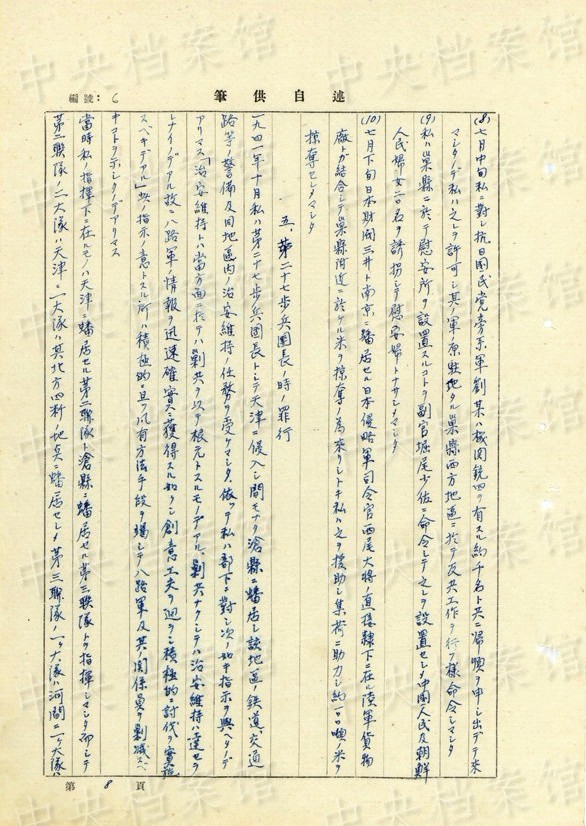 中央档案馆
編號：6
筆供自述
(8)七月中旬私ニ對シ抗日國民党旁系軍劉某ハ機関銃四ヲ有スル約千名ト共ニ帰順ヲ申シ出デテ来
マシタノデ私ハ之レヲ許可シ其ノ軍ノ原駐地タル巣縣西方地區ニ於テ反共工作ヲ行フ様命令シマシタ
(9)私ハ巣縣ニ於テ慰安所ヲ設置スルコトヲ副官堀尾少佐ニ命令シテ之レヲ設置セシメ中國人民及朝鮮
人民婦女二〇名ヲ誘拐シテ慰安婦トナサシメマシタ
(10)七月下旬日本財閥三井ト南京ニ蟠居セル日本侵略軍司令官西尾大将ノ直接隷下ニ在ル陸軍貨物
廠トガ結合シテ巣縣附近ニ於ケル米ヲ掠奪ノ為来マシタトキ私ハ之ヲ援助シ集荷ニ助力シ約一〇〇噸ノ米ヲ
掠奪セシメマシタ
五、第二十七歩兵團長ノ時ノ罪行
一九四一年十月私ハ第二十七歩兵團長トシテ天津ニ侵入シ間モナク滄縣ニ蟠居シ該地區ノ鉄道、交通
路等ノ警備及同地區内ノ治安維持ノ任務ヲ受ケマシタ、依ッテ私ハ部下ニ對シ次ノ如キ指示ヲ與ヘタノデ
アリマス「治安維持ハ當方面ニ於テハ剿共ヲ以テ根元トスルモノデアル、剿共ナクシテハ治安維持ハ達セラ
レナイノデアル故ニ八路軍ノ情報ヲ迅速確實ニ獲得スル如クシ創意工夫ヲ廻ラシ積極的ニ討伐ヲ實施
スベキデアル」此ノ指示ノ意トスル所ハ積極的ニ且ツ凡有方法手段ヲ竭シテ八路軍及其ノ関係者ヲ剿滅スベ
キコトヲ示シタノデアリマス
當時私ノ指揮下ニ在ルモノハ天津ニ蟠居セル第二聯隊ト滄縣ニ蟠居セル第三聯隊トヲ指揮シマシタ而シテ
第二聯隊ノ二大隊ハ天津ニ一大隊ハ其北方四粁ノ地点ニ蟠居セシメ第三聯隊ノ一ヶ大隊ハ河間ニ一ヶ大隊ハ
第 8 頁